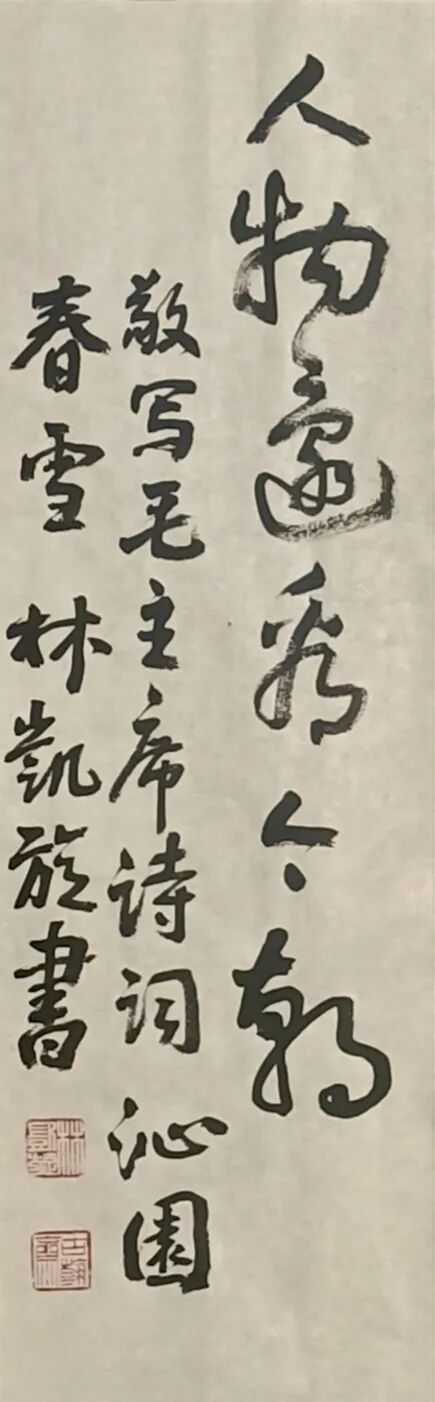 人物还看今朝
敬写毛主席诗词沁园
春雪 林凯旋书